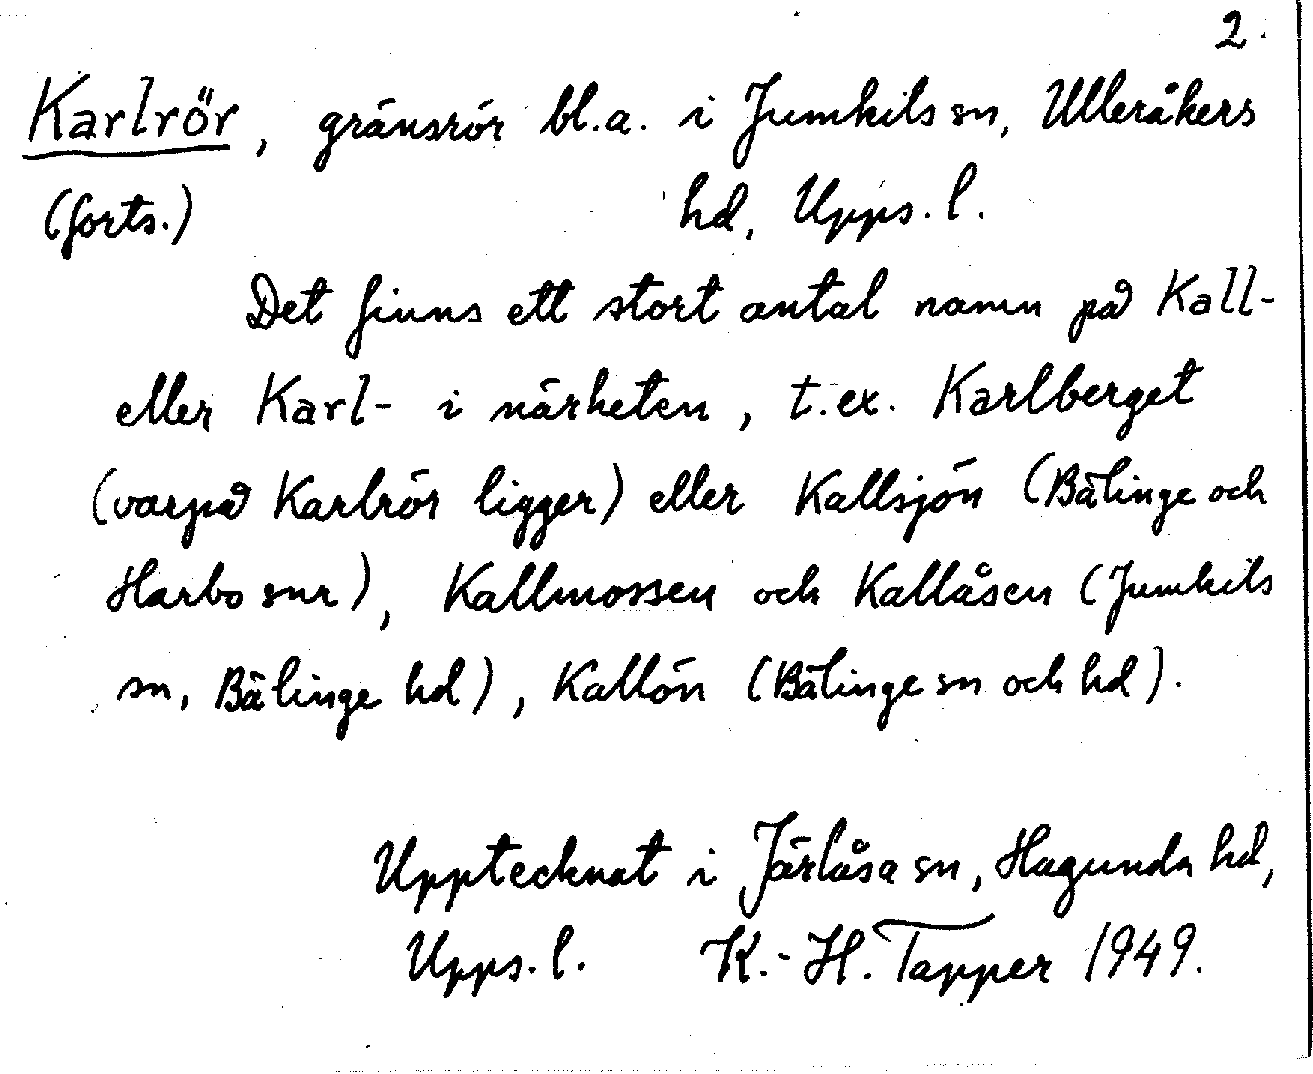 2.
Karlrör, gränsrör bl.a. i Jumkils sn, Ulleråkers
(forts.) hd, Upps. l.
Det finns ett stort antal namn på Kall-
eller Karl- i närheten, t.ex. Karlberget
(varpå Karlrör ligger) eller Kallsjön (Bälinge och
Harbo snr), Kallmossen och Kallåsen (Jumkils
sn, Bälinge hd), Kallön (Bälinge sn och hd).
Upptecknat i Järlåsa sn, Hagunda hd,
Upps. l. K.-H. Tapper 1949.